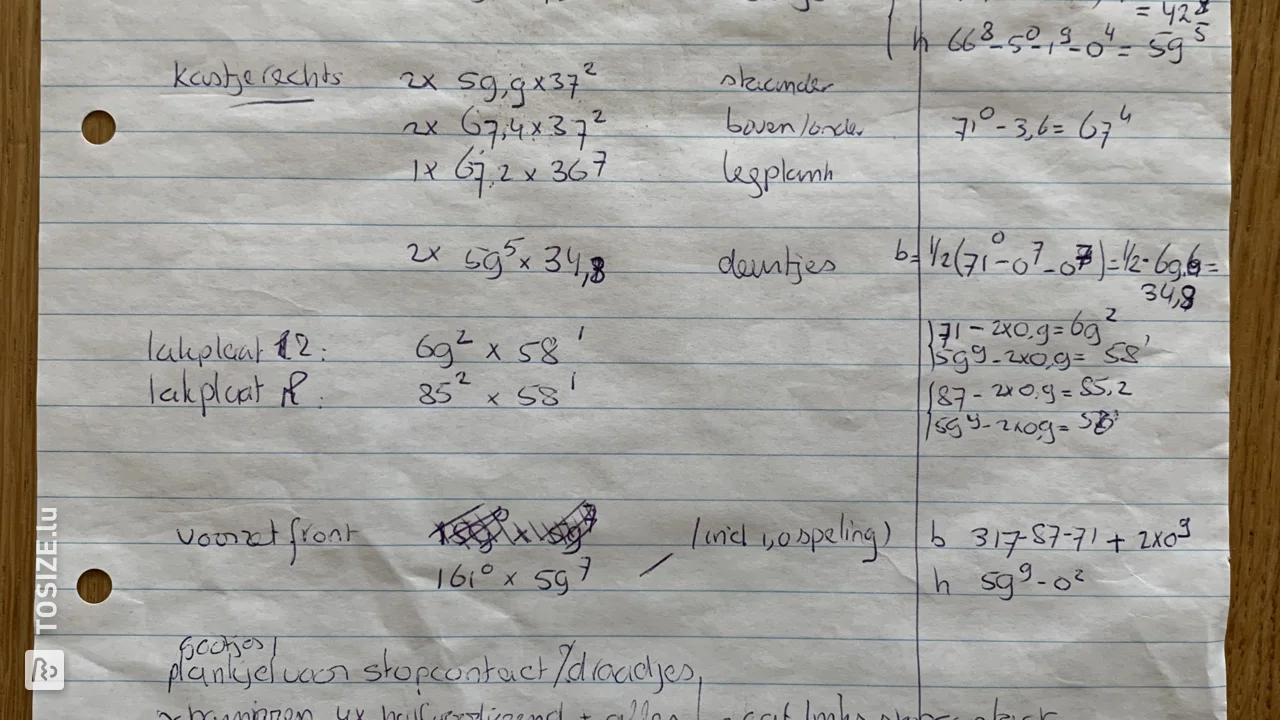 = 42⁸
h 66⁸ - 5⁰ - 1⁹ - 0⁴ = 59⁵
kastje rechts 2x 59,9 x 37² staander
2x 67,4 x 37² boven/onder 71⁰ - 3,6 = 67⁴
1x 67,2 x 36⁷ legplank
2x 59⁵ x 34,8 deurtjes b = 1/2 (71⁰ - 0⁷ - 0⁷) = 1/2 · 69,6 =
34,8
71 - 2x0,9 = 69²
lakplaat 12: 69² x 58¹ 59⁹ - 2x0,9 = 58¹
lakplaat R: 85² x 58¹ 87 - 2x0,9 = 85,2
59⁹ - 2x0,9 = 58¹
voorzet front (incl 1,0 speling) b 317-87-71 + 2x0⁹
161⁰ x 59⁷ h 59⁹ - 0²
gootjes,
plankje voor stopcontact/draadjes,
TOSIZE.lu